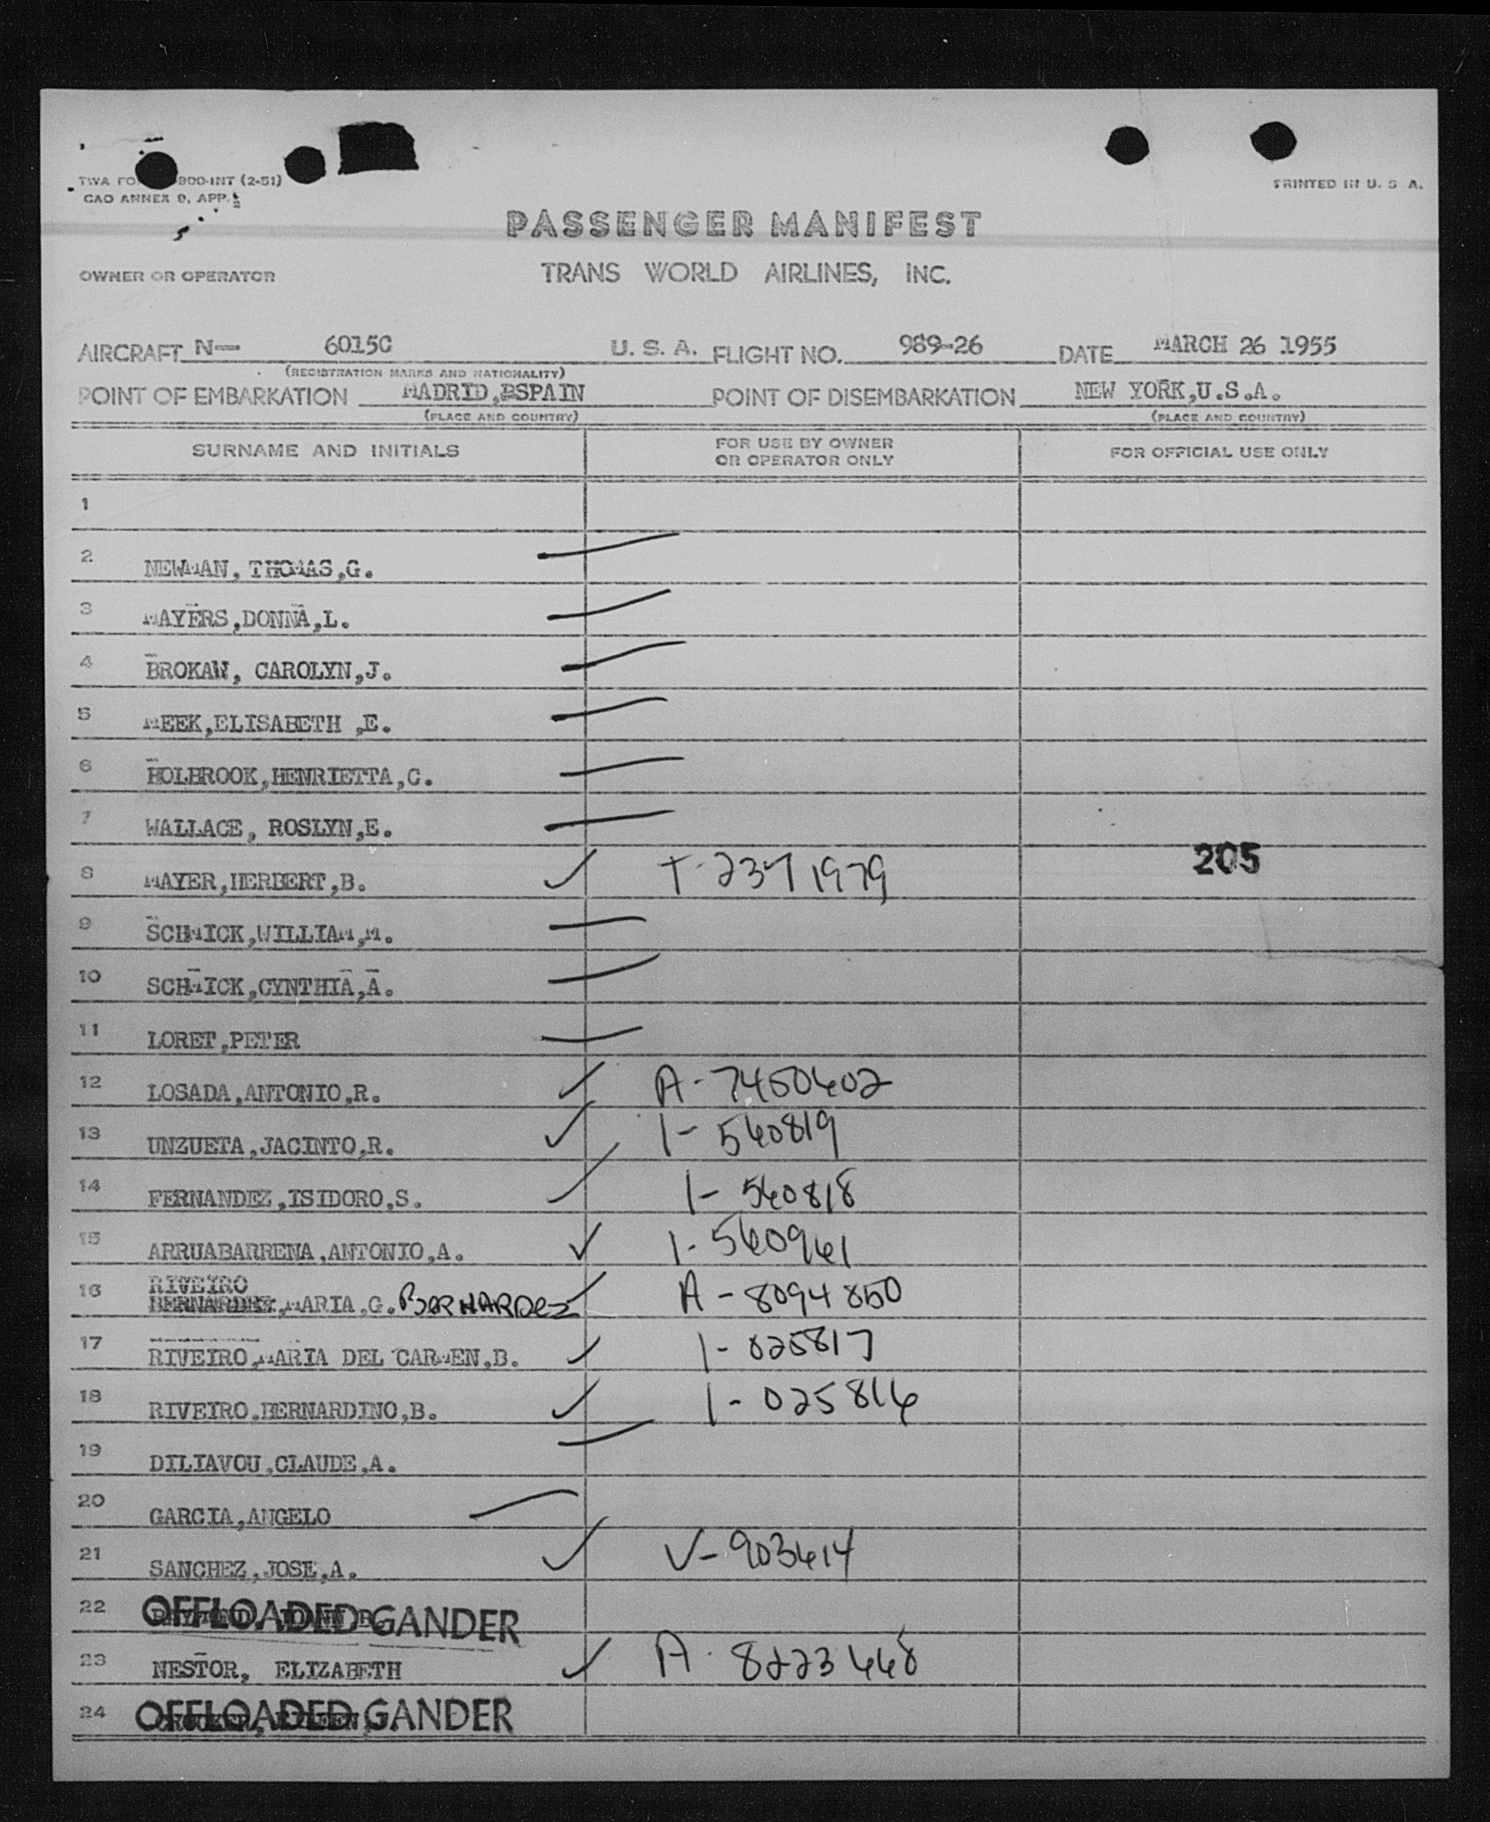 300-INT (2-51)
CAO ANNEX 9, APP.
PRINTED IN U. S. A.
PASSENGER MANIFEST
OWNER OR OPERATOR TRANS WORLD AIRLINES, INC.
AIRCRAFT N— 6015C U. S. A. FLIGHT NO. 989-26 DATE MARCH 26 1955
(REGISTRATION MARKS AND NATIONALITY)
POINT OF EMBARKATION MADRID,ESPAIN POINT OF DISEMBARKATION NEW YORK,U.S.A.
(PLACE AND COUNTRY) (PLACE AND COUNTRY)
SURNAME AND INITIALS FOR USE BY OWNER OR OPERATOR ONLY FOR OFFICIAL USE ONLY
1
2 NEWMAN, THOMAS,G.
3 MAYERS,DONNA,L.
4 BROKAW, CAROLYN,J.
5 MEEK,ELISABETH ,E.
6 HOLBROOK,HENRIETTA,C.
7 WALLACE, ROSLYN,E.
8 MAYER,HERBERT,B. ✓ T-2371979 205
9 SCHMICK,WILLIAM,M.
10 SCHMICK,CYNTHIA,A.
11 LORET,PETER
12 LOSADA,ANTONIO,R. ✓ A-7450602
13 UNZUETA,JACINTO,R. ✓ 1-560819
14 FERNANDEZ,ISIDORO,S. ✓ 1-560818
15 ARRUABARRENA,ANTONIO,A. ✓ 1-560961
RIVEIRO
16 BERNARDEZ,MARIA,G. BERNARDEZ ✓ A-8094850
17 RIVEIRO,MARIA DEL CARMEN,B. ✓ 1-025817
18 RIVEIRO,BERNARDINO,B. ✓ 1-025816
19 DILIAVOU,CLAUDE,A.
20 GARCIA,ANGELO
21 SANCHEZ,JOSE,A. ✓ V-903614
22 OFFLOADED GANDER
23 NESTOR, ELIZABETH ✓ A-8223668
24 OFFLOADED GANDER